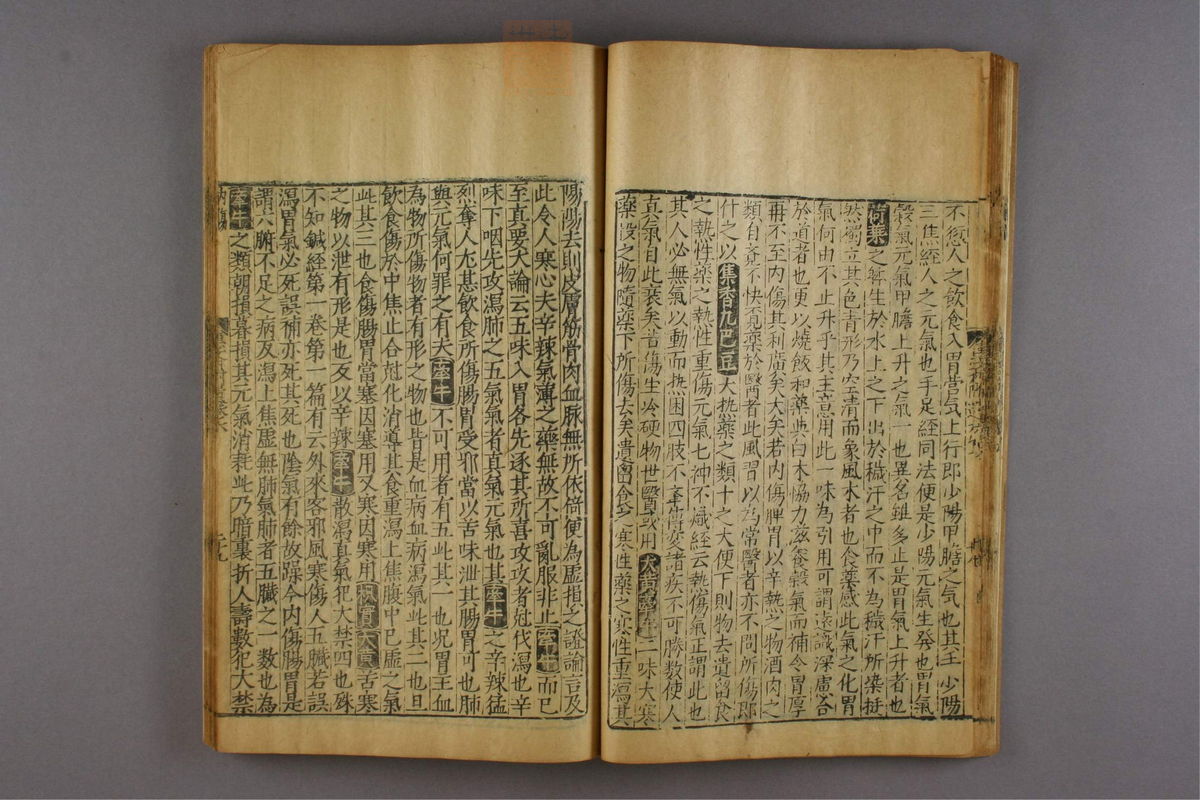 不㤀人之飲食入胃營气上行即少陽甲膽之气也其主少陽
三焦經人之元氣也手足經同法便是少陽元氣生発也胃氣
榖氣元氣甲膽上升之气一也異名雖多止是胃氣上升者也
荷葉之躰生於水土之下出於穢汙之中而不為穢汙所染挺
然獨立其色青形乃空清而象風木者也食藥感此氣之化胃
氣何由不上升乎其主意用此一味為引用可謂遠識深慮合
於道者也更以燒飯和藥與白木協力滋養榖氣而補令胃厚
再不至內傷其利廣矣大矣若內傷脾胃以辛熱之物酒肉之
類自不快覓藥於醫者此風習以為常醫者亦不問所傷即
什之以集香丸巴豆大热藥之類十之大便下則物去遺留食
之热性藥之热性重傷元氣七神不熾經云热傷氣正謂此也
其人必無氣以動而热困四肢不舉傳變諸疾不可勝數使人
真氣自此衰矣若傷生冷硬物世醫或用大黃牽牛二味大寒
藥投之物隨藥下所傷去矣遺留食之寒性藥之寒性重瀉其
陽陽去則皮膚筋骨肉血脉無所依倚便為虛損之證論言及
此令人寒心夫辛辣氣薄之藥無故不可亂服非止牽牛而已
至真要大論云五味入胃各先逐其所喜攻攻者尅伐瀉也辛
味下咽先攻瀉肺之五氣氣者真氣元氣也其牽牛之辛辣猛
烈奪人尤甚飲食所傷腸胃受邪當以苦味泄其腸胃可也肺
與元氣何罪之有夫牽牛不可用者有五此其一也况胃主血
為物所傷物者有形之物也皆是血病血病瀉气此其二也且
飲食傷於中焦止合尅化消導其食重瀉上焦腹中已虛之氣
此其三也食傷腸胃當塞因塞用又寒因寒用枳實大黃苦寒
之物以泄有形是也反以辛辣牽牛散瀉真氣犯大禁四也殊
不知鍼經第一卷第一篇有云外來客邪風寒傷人五臟若誤
瀉胃氣必死誤補亦死其死也陰氣有餘故躁今內傷腸胃是
謂六腑不足之病反瀉上焦虛無肺氣肺者五臟之一數也為
牽牛之類朝損暮損其元氣消耗此乃暗裏折人壽數犯大禁